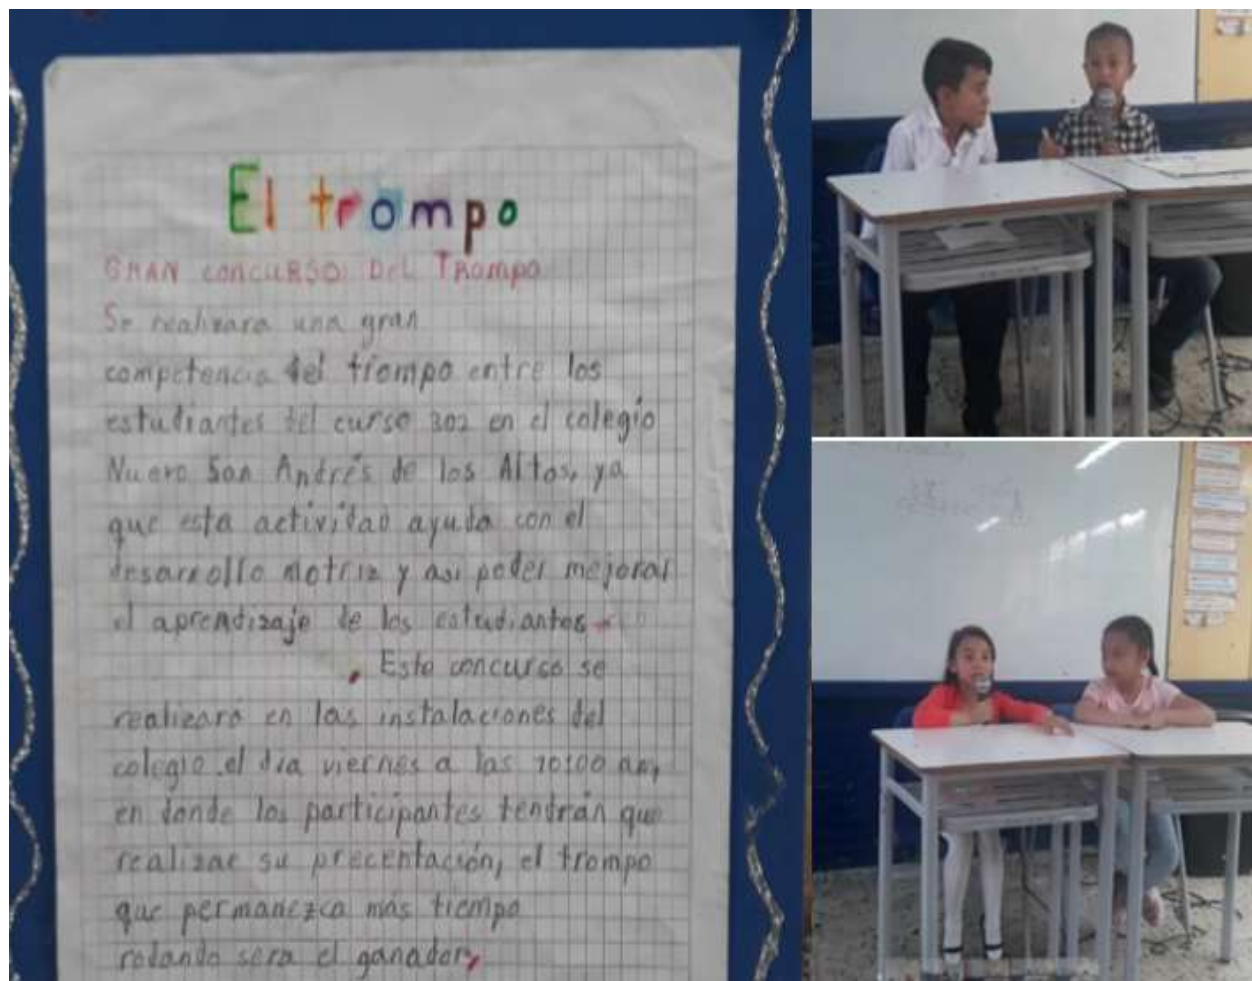 El trompo
GRAN CONCURSO DEL Trompo
Se realizara una gran
competencia del trompo entre los
estudiantes del curso 302 en el colegio
Nuevo San Andrés de los Altos, ya
que esta actividad ayuda con el
desarrollo motriz y asi poder mejorar
el aprendizaje de los estudiantes
. Este concurso se
realizará en las instalaciones del
colegio el dia viernes a las 10:00 am,
en donde los participantes tendrán que
realizar su precentación, el trompo
que permanezca más tiempo
rodando sera el ganador.